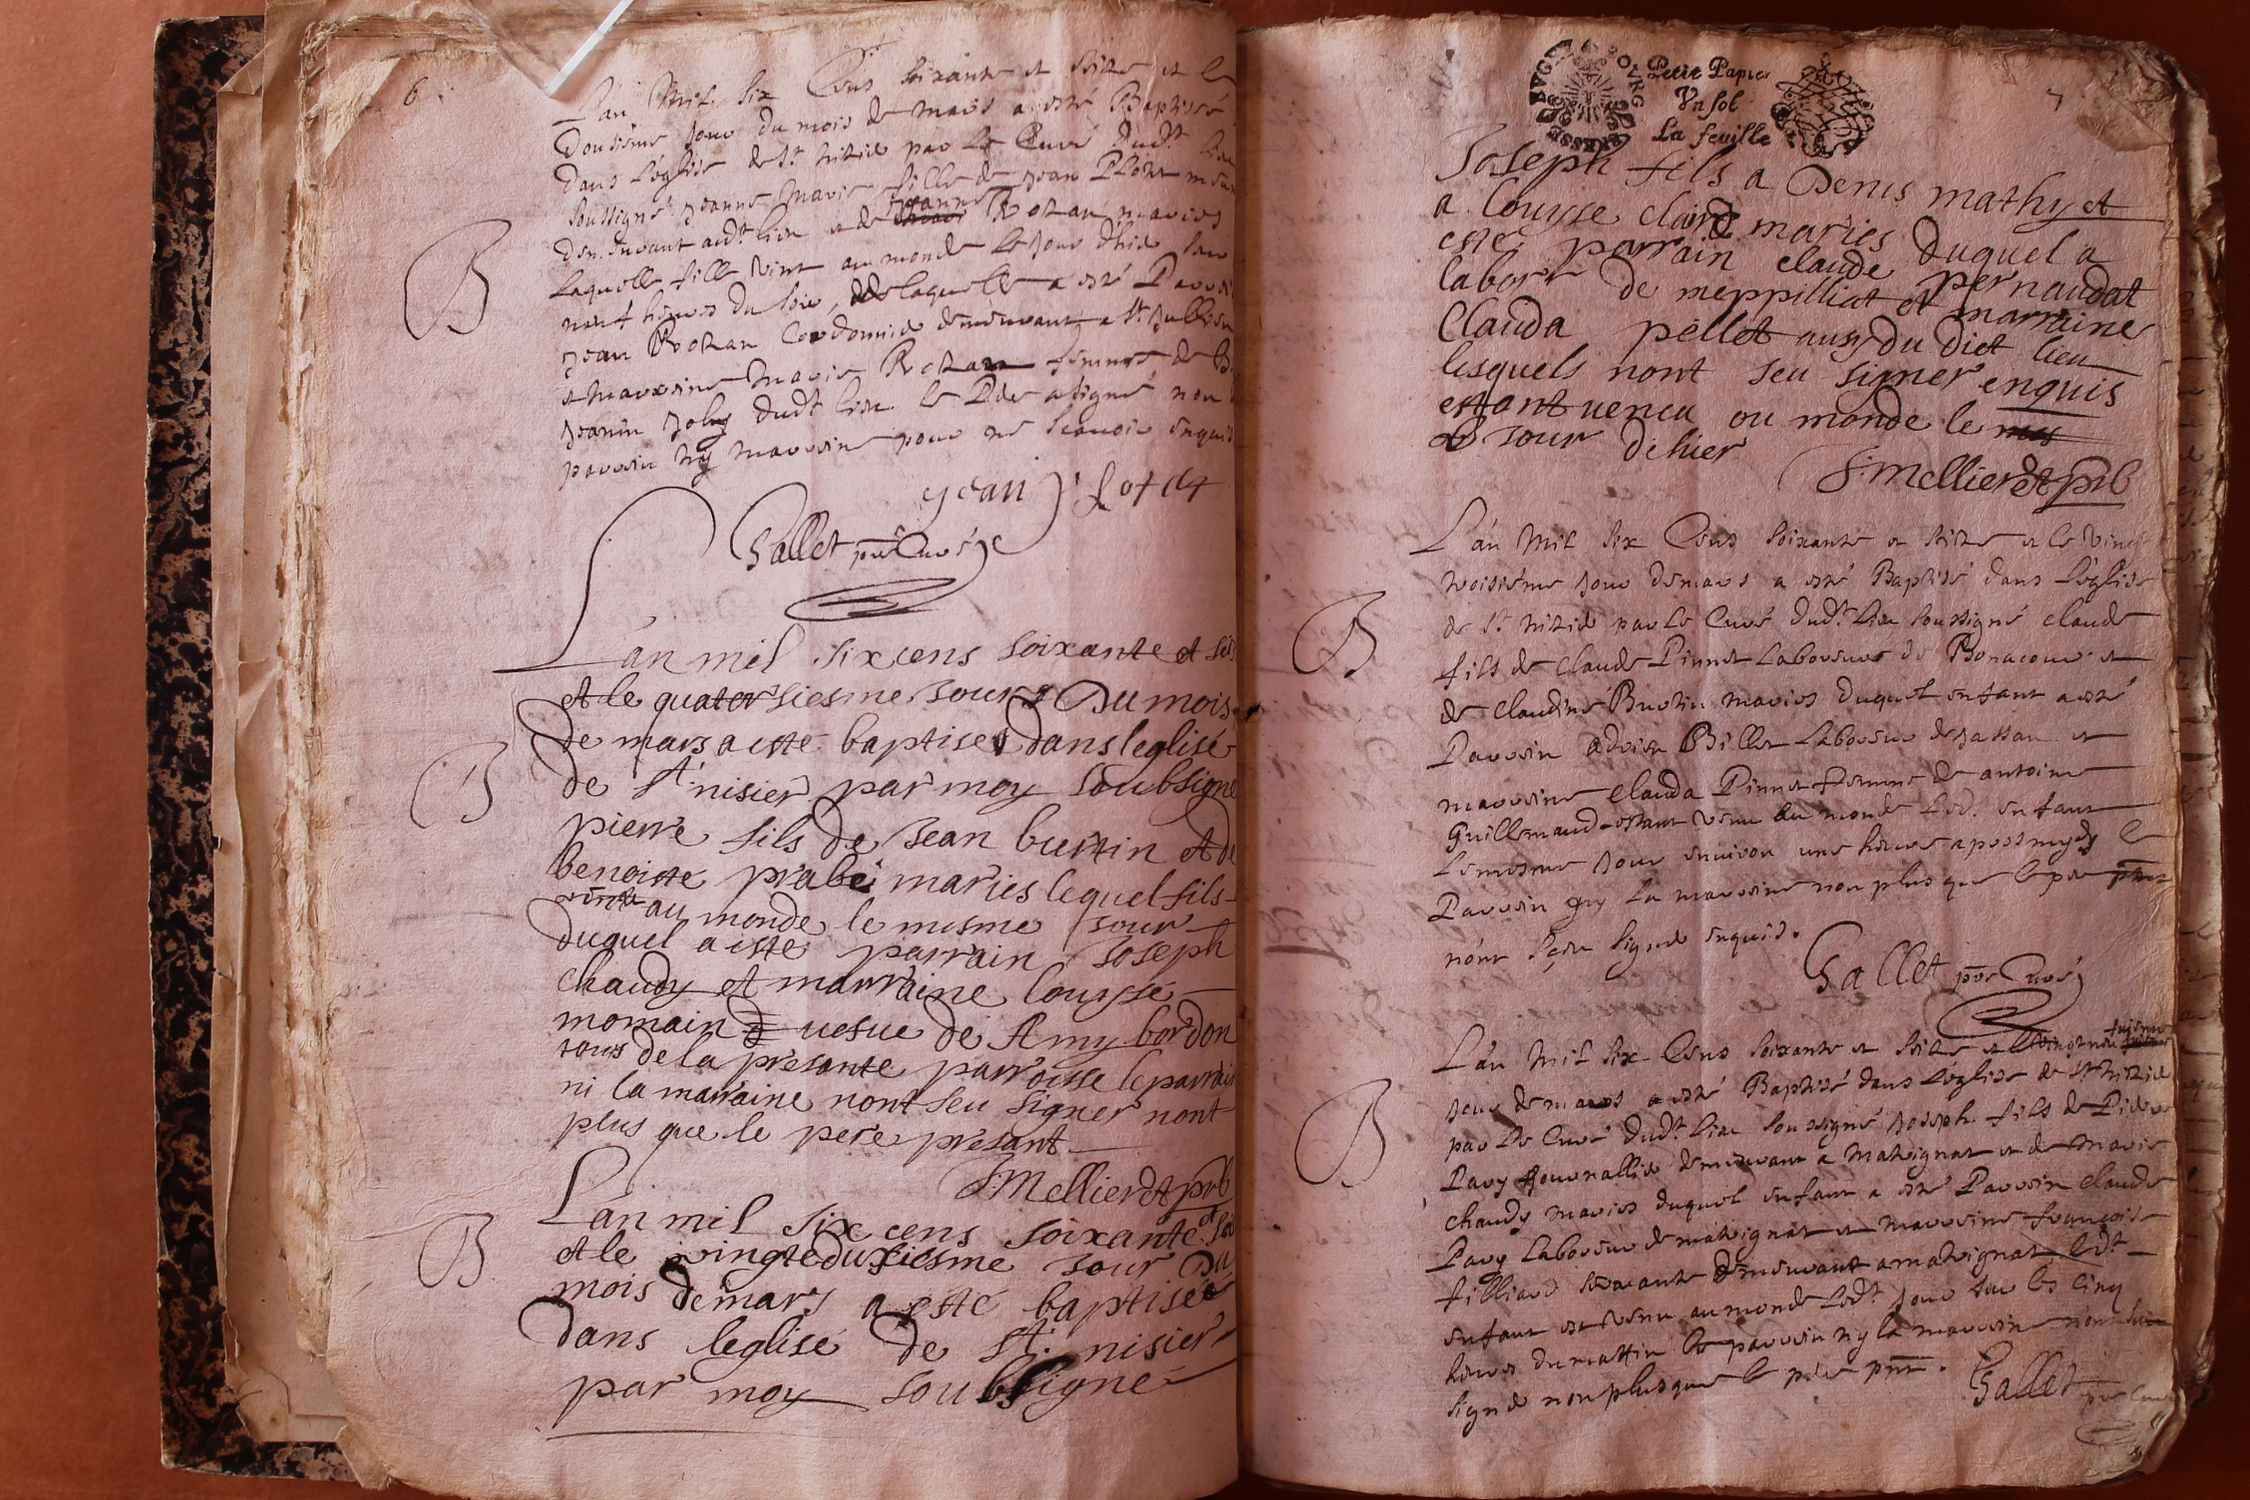 6
L'an Mil Six Cens soixante et seize et le
Douziéme Jour du mois de Mars a esté Baptisé
dans l'église de St Nizié par le Curé dudt lieu
soussigné Jeanne Marie fille de Jean Flotet
demeurant audt lieu et de Jeanne Rotzan mariés
laquelle fille vint au monde le Jour d'hié sur
neuf heures du soir, de laquelle a esté Parrain
Jean Rotzan Cordonnié demeurant a St Jullien
et Marraine Marie femme de
Jeanin Joly dudt lieu le Pére a signé non
parrain ny marraine pour ne scavoir enquis
Jean flotet
Gallet prê Curé
L'an mil six cens soixante et
et le quatorsiesme Jour Du mois
de mars a esté baptise dans leglise
de St nisier par moy soubsigne
pierre fils de Jean burtin et de
benoiste prabé maries lequel fils
vint au monde le mesme Jour
duquel a esté parrain Joseph
chaudy et marraine louyse
momain uesue de Amy bordon
tous de la presante parroisse le parrain
ni la marraine nont seu signer nont
plus que le pere presant
Mellieret prb
B
B
B
L'an mil six cens soixante et
et le vingteduxiesme Jour Du
mois de mars a esté baptisée
dans leglise de St nisier
par moy soubsigné
Petit Papier
Un sol
La feuille
7
Joseph fils a Denis mathy et
a Louyse claire maries duquel a
este parrain claude pernaudat
labor de meppilliat et marraine
Clauda pellet ausy du dict lieu
lesquels nont seu signer enquis
estant uenca ou monde le
le Jour dehier
Mellieret prb
L'an Mil Six Cens soixante et seize et le vingt
troisiéme Jour de mars a esté Baptisé dans l'église
de St Nizié par le Curé dudt lieu soussigné claude
fils de claude Pinnet Laboureur de Bonacour et
de claudine Burtin mariés duquel enfant a esté
Parrain Billet Laboureur de Jassan et
marraine clauda Pinnet femme de antoine
Guillemaud estant venu au monde led. enfant
le mesme Jour environ une heure apres mydy le
Parrain ny la marraine non plus que le pére
n'ont sceu signé enquis.
Gallet prê Curé
B
L'an Mil Six Cens soixante et seize et le
Jour de mars a esté Baptisé dans l'église de St Nizié
par le Curé dudt lieu soussigné Joseph fils de Pierre
Pavy Journallié demeurant a Matrignat et de Marie
chaudy mariés duquel enfant a esté Parrain claude
Pavy Laboureur de matrignat et marraine françoise
filliard servante demeurant a matrignat ledt
enfant est venu au monde ledt Jour sur les cinq
heures du mattin le parrain ny la marraine n'ont
signé non plus que le pére prnt.
Gallet prê Curé
B